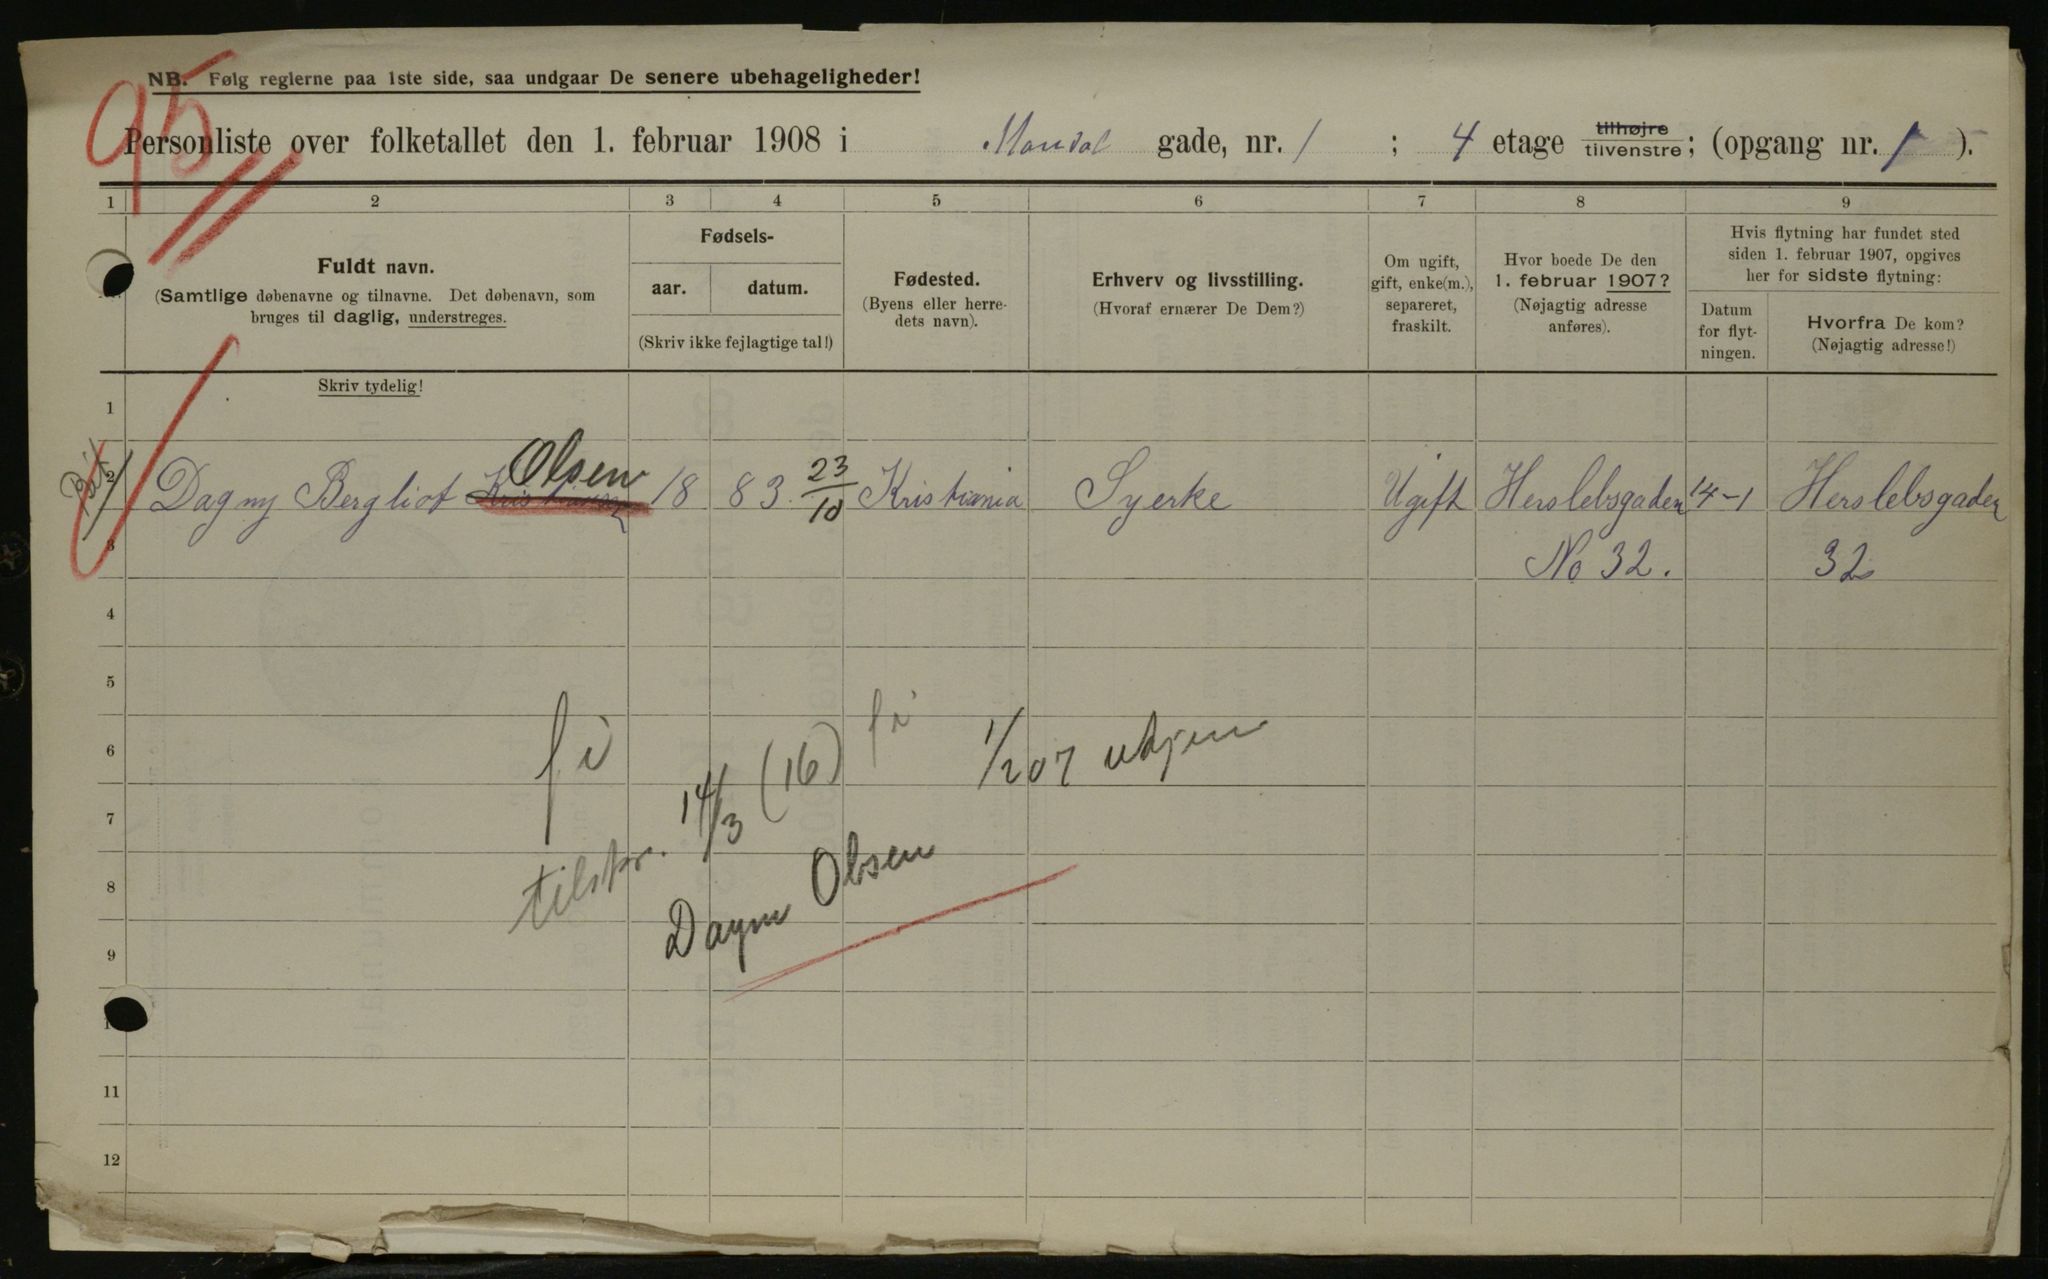 95
NB. Følg reglerne paa 1ste side, saa undgaar De senere ubehageligheder!
Personliste over folketallet den 1. februar 1908 i Mandal gade, nr. 1 ; 4 etage tilhøjre tilvenstre; (opgang nr. 1 ).
1 2 3 4 5 6 7 8 9
Fuldt navn.
(Samtlige døbenavne og tilnavne. Det døbenavn, som
bruges til daglig, understreges.
Skriv tydelig!
Fødsels-
aar. datum.
(Skriv ikke fejlagtige tal!)
Fødested.
(Byens eller herre-
dets navn).
Erhverv og livsstilling.
(Hvoraf ernærer De Dem?)
Om ugift,
gift, enke(m.),
separeret,
fraskilt.
Hvor boede De den
1. februar 1907?
(Nøjagtig adresse
anføres).
Hvis flytning har fundet sted
siden 1. februar 1907, opgives
her for sidste flytning:
Datum
for flyt-
ningen.
Hvorfra De kom?
(Nøjagtig adresse!)
1
Olsen
2 Dagny Bergliot Kristiansen 18 83 23/10 Kristiania Syerke Ugift Herslebsgaden 14-1 Herslebsgaden
3 No 32. 32
4
5
6 (16) 1/2 07
7 14/3
8 tilskr. Olsen
9 Dagny
11
12